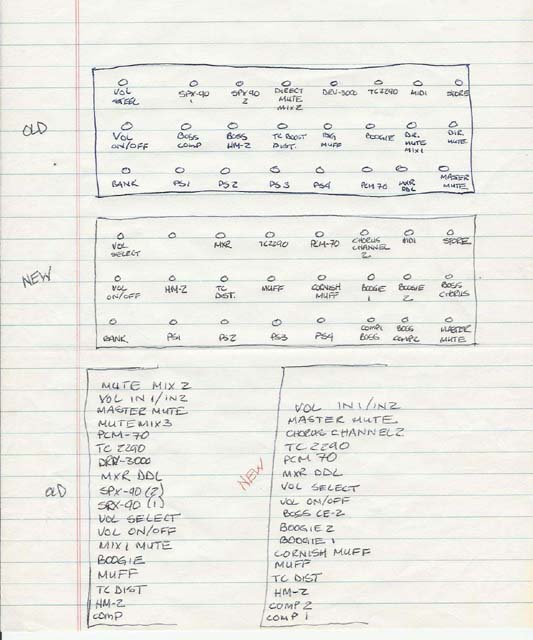 VOL SELECT SPX-90 1 SPX-90 2 DIRECT MUTE MIX 2 DRV-3000 TC2290 MIDI STORE
OLD
VOL ON/OFF BOSS COMP BOSS HM-2 TC BOOST DIST. BIG MUFF BOOGIE DIR. MUTE MIX 1 DIR. MUTE
BANK PS1 PS2 PS3 PS4 PCM 70 MXR DDL MASTER MUTE
VOL SELECT MXR TC2290 PCM-70 CHORUS CHANNEL 2 MIDI STORE
NEW
VOL ON/OFF HM-2 TC DIST. MUFF CORNISH MUFF BOOGIE 1 BOOGIE 2 BOSS CHORUS
BANK PS1 PS2 PS3 PS4 COMP1 BOSS BOSS COMP2 MASTER MUTE
OLD
MUTE MIX 2
VOL IN 1/IN2
MASTER MUTE
MUTE MIX 3
PCM-70
TC 2290
DRV-3000
MXR DDL
SPX-90 (2)
SPX-90 (1)
VOL SELECT
VOL ON/OFF
MIX 1 MUTE
BOOGIE
MUFF
TC DIST
HM-2
COMP
NEW
VOL IN1/IN2
MASTER MUTE
CHORUS CHANNEL 2
TC 2290
PCM 70
MXR DDL
VOL SELECT
VOL ON/OFF
BOSS CE-2
BOOGIE 2
BOOGIE 1
CORNISH MUFF
MUFF
TC DIST
HM-2
COMP 2
COMP 1